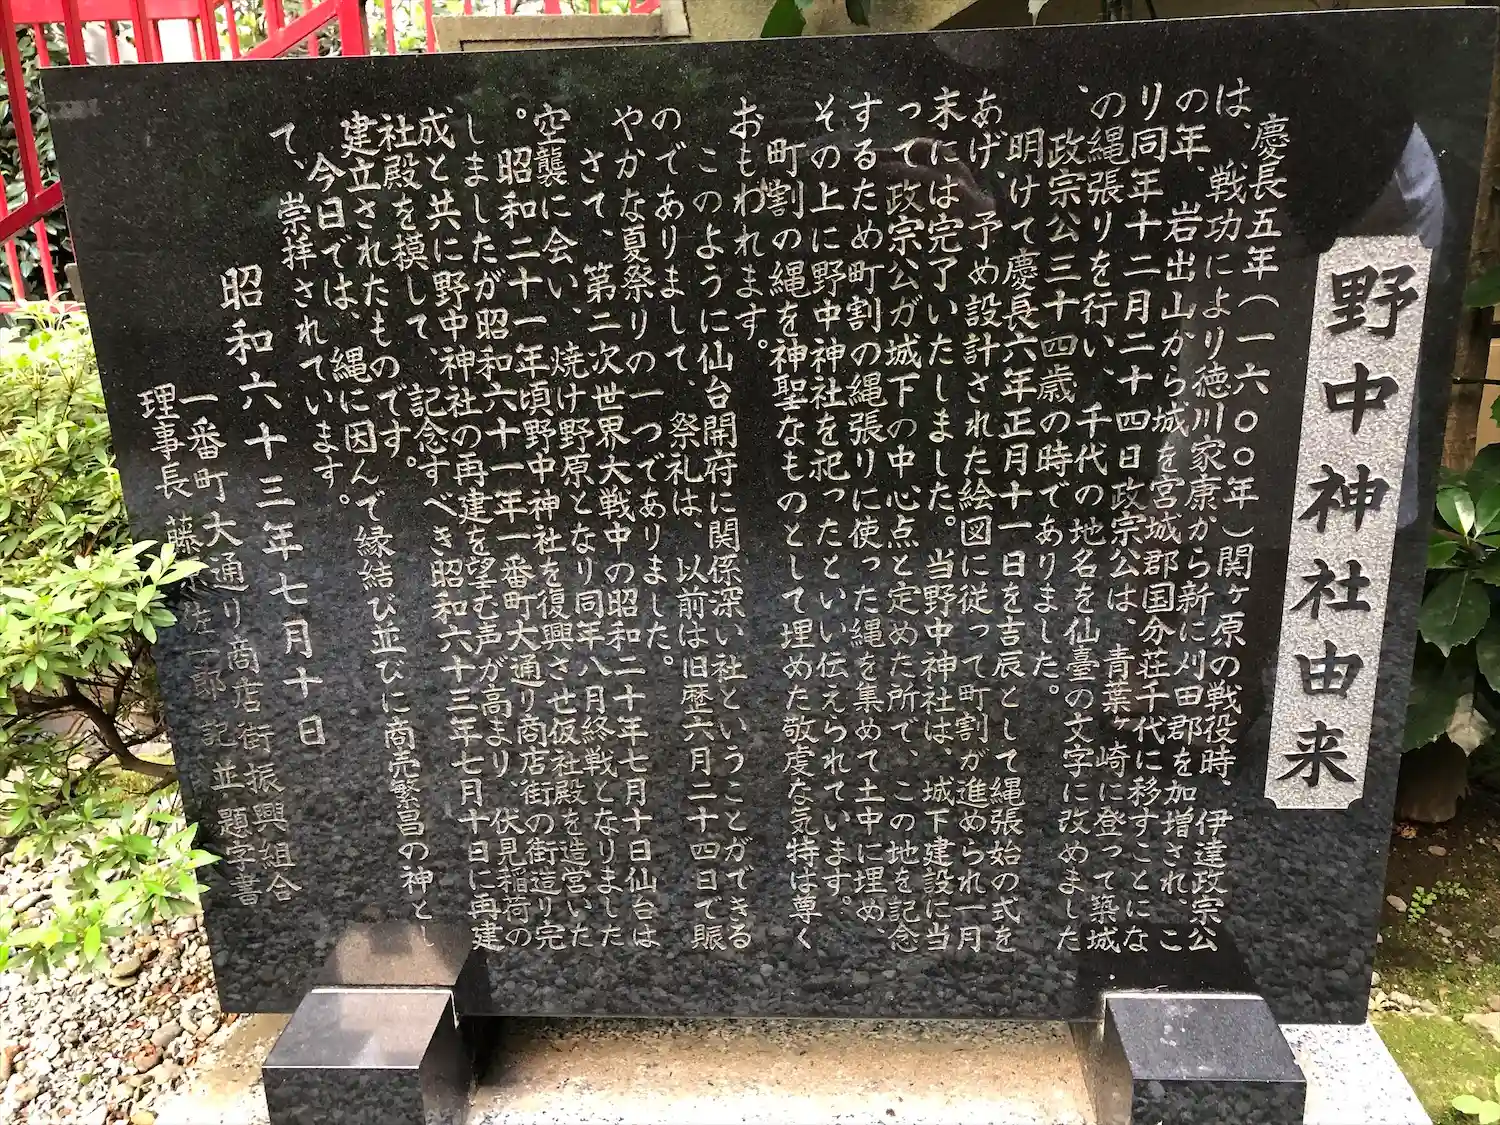 野中神社由来
慶長五年(一六〇〇年)関ヶ原の戦役時、伊達政宗公
は、戦功により徳川家康から新に刈田郡を加増され、こ
の年、岩出山から城を宮城郡国分荘千代に移すことにな
り同年十二月二十四日政宗公は、青葉ヶ崎に登って築城
の縄張りを行い、千代の地名を仙臺の文字に改めました
、政宗公三十四歳の時でありました。
明けて慶長六年正月十一日を吉辰として縄張始の式を
あげ、予め設計された絵図に従って町割が進められ一月
末には完了いたしました。当野中神社は、城下建設に当
って政宗公が城下の中心点と定めた所で、この地を記念
するため町割の縄張りに使った縄を集めて土中に埋め、
その上に野中神社を祀ったといい伝えられています。
町割の縄を神聖なものとして埋めた敬虔な気持は尊く
おもわれます。
このように仙台開府に関係深い社ということができる
のでありまして、祭礼は、以前は旧暦六月二十四日で賑
やかな夏祭りの一つでありました。
さて、第二次世界大戦中の昭和二十年七月十日仙台は
空襲に会い、焼け野原となり同年八月終戦となりました
。昭和二十一年頃野中神社を復興させ仮社殿を造営いた
しましたが昭和六十一年一番町大通り商店街の街造り完
成と共に野中神社の再建を望む声が高まり、伏見稲荷の
社殿を模して、記念すべき昭和六十三年七月十日に再建
建立されたものです。
今日では、縄に因んで縁結び並びに商売繁昌の神とし
て、崇拝されています。
昭和六十三年七月十日
一番町大通り商店街振興組合
理事長 藤 佐一郎 記並題字書